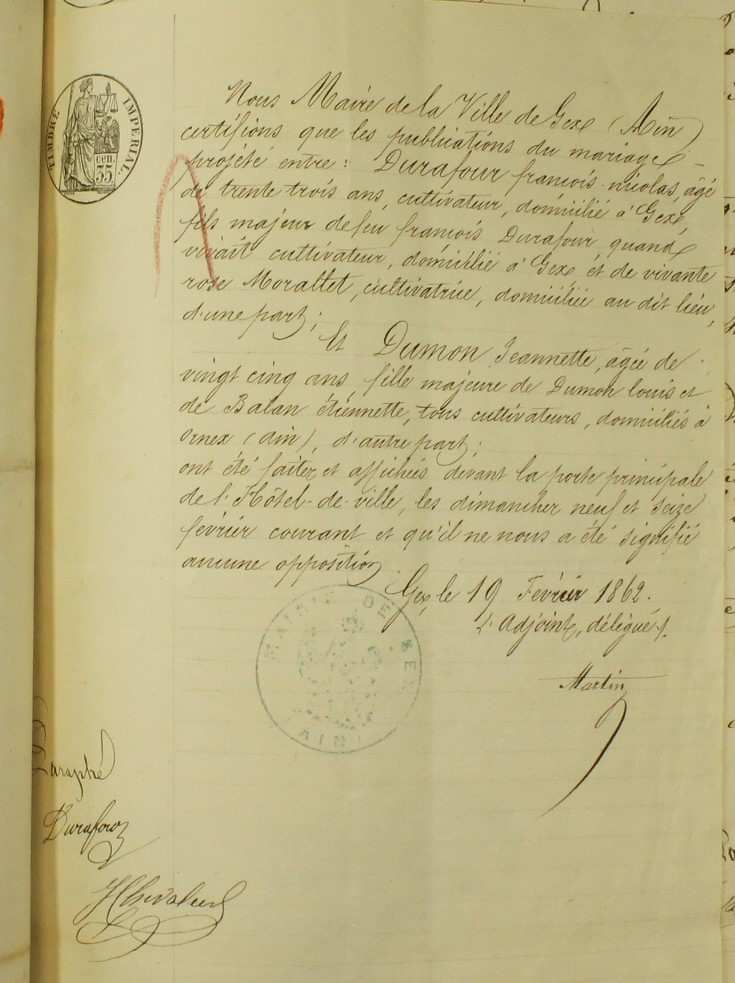 TIMBRE IMPERIAL.
CEN.
35
Nous Maire de la Ville de Gex (Ain)
certifions que les publications du mariage
projété entre : Durafour françois-nicolas, âgé
de trente trois ans, cultivateur, domicilié à Gex,
fils majeur de feu françois Durafour quand
vivait cultivateur, domicilié à Gex et de vivante
rose Morallet, cultivatrice, domiciliée au dit lieu,
d'une part ;
Et Dumon Jeannette, âgée de
vingt cinq ans, fille majeure de Dumon louis et
de Balan étiennette, tous cultivateurs, domiciliés à
Ornex (Ain), d'autre part ;
ont été faites et affichées devant la porte principale
de l'Hôtel-de-ville, les dimanches neuf et seize
février courant et qu'il ne nous a été signifié
aucune opposition
Gex, le 19 Février 1862.
L'Adjoint, délégué
Martin
MAIRIE DE GEX
(AIN)
Paraphé
Durafour